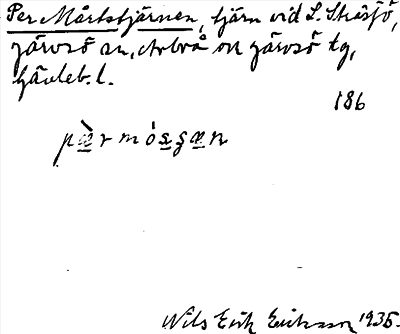 Per Mårtstjärnen, tjärn vid L. Stråsjö,
Järvsö sn, Arbrå och Järvsö tg,
Gävleb. l.
186
pær mósgæn
Nils Erik Eriksson 1935.